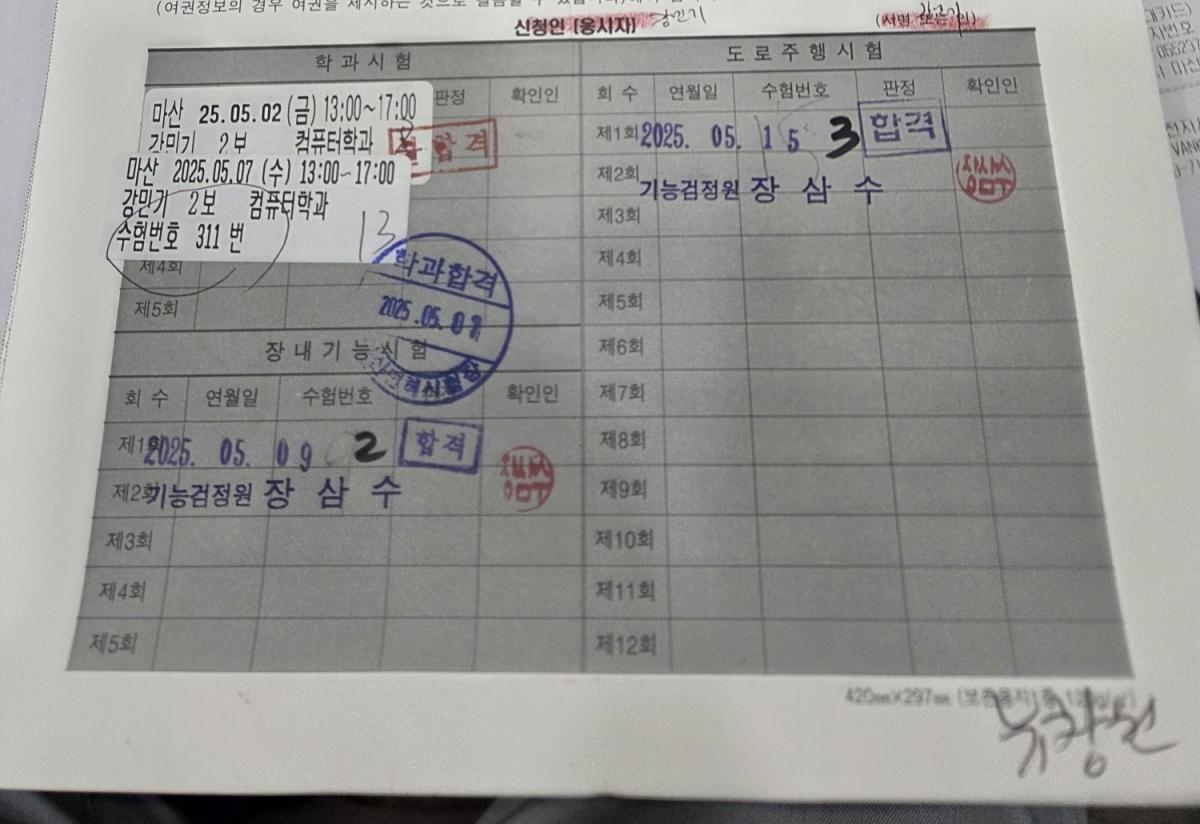 (여권정보의 경우 여권을 제시하는 것으로 갈음할 수 있습니다)
신청인 (응시자) 강민기 (서명 또는 인)
학과시험
판정 확인인
마산 25.05.02 (금) 13:00~17:00
강민기 2보 컴퓨터학과
합격
마산 2025.05.07 (수) 13:00~17:00
강민기 2보 컴퓨터학과
수험번호 311 번
13
제4회
제5회
학과합격
2025.05.07
장내기능시험
회수 연월일 수험번호 확인인
제1회 2025. 05. 09 2 합격
제2회 기능검정원 장삼수
제3회
제4회
제5회
도로주행시험
회수 연월일 수험번호 판정 확인인
제1회 2025. 05. 15 3 합격
제2회 기능검정원 장삼수
제3회
제4회
제5회
제6회
제7회
제8회
제9회
제10회
제11회
제12회
420㎜×297㎜